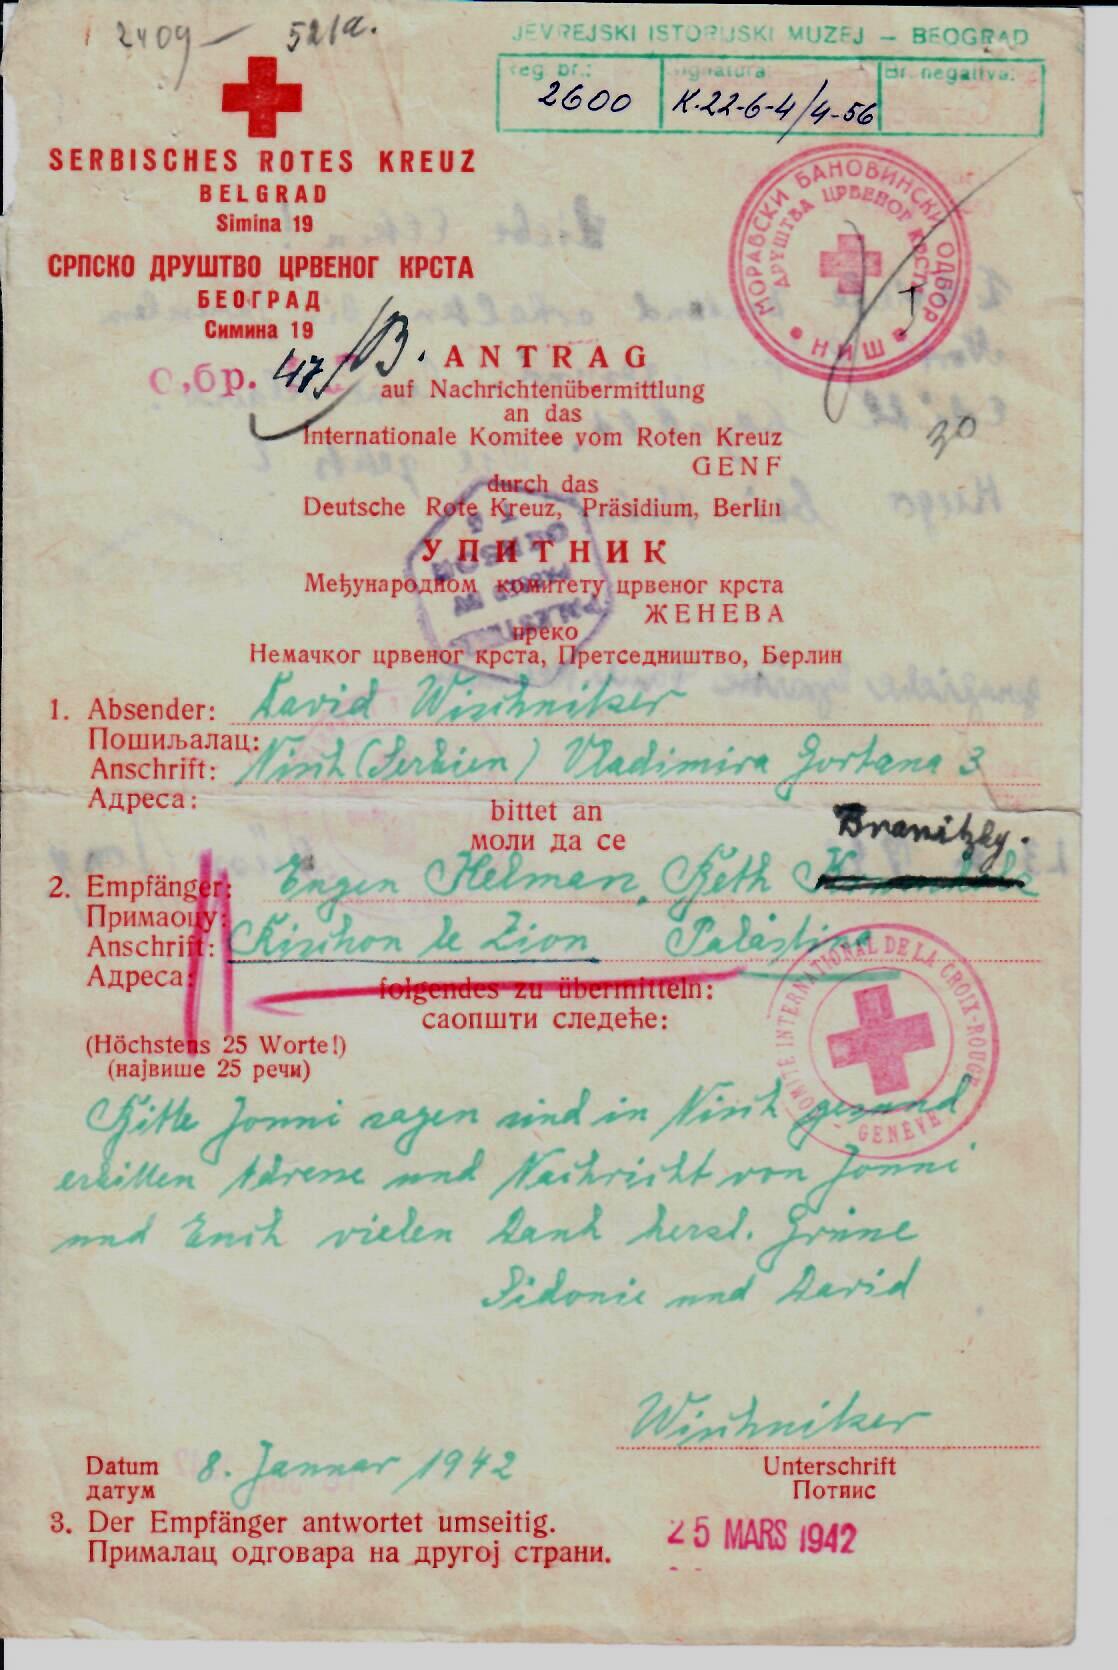 2409 — 521/a.
JEVREJSKI ISTORIJSKI MUZEJ – BEOGRAD
Reg. br.: Signatura: Br. negativa:
2600 K-22-6-4/4-56
SERBISCHES ROTES KREUZ
BELGRAD
Simina 19
СРПСКО ДРУШТВО ЦРВЕНОГ КРСТА
БЕОГРАД
Симина 19
МОРАВСКИ БАНОВИНСКИ ОДБОР
ДРУШТВА ЦРВЕНОГ КРСТА
НИШ
О,бр. 47/B.
30
ANTRAG
auf Nachrichtenübermittlung
an das
Internationale Komitee vom Roten Kreuz
GENF
durch das
Deutsche Rote Kreuz, Präsidium, Berlin
УПИТНИК
Међународном комитету црвеног крста
ЖЕНЕВА
преко
Немачког црвеног крста, Претседништво, Берлин
1. Absender: David Wischnitzer
Пошиљалац:
Anschrift: Nisch (Serbien) Vladimira Gortana 3
Адреса:
bittet an
моли да се
Branitzky.
2. Empfänger: Eugen Helman, Beth
Примаоцу:
Anschrift: Rischon le Zion Palästina
Адреса:
folgendes zu übermitteln:
саопшти следеће:
COMITÉ INTERNATIONAL DE LA CROIX-ROUGE
GENÈVE
(Höchstens 25 Worte!)
(највише 25 речи)
Bitte Jonni sagen sind in Nisch gesund
erbitten Adresse und Nachricht von Jonni
und Euch vielen Dank herzl. Grüsse
Sidonie und David
Wischnitzer
Datum 8. Januar 1942
датум
Unterschrift
Потпис
3. Der Empfänger antwortet umseitig.
Прималац одговара на другој страни.
25 MARS 1942